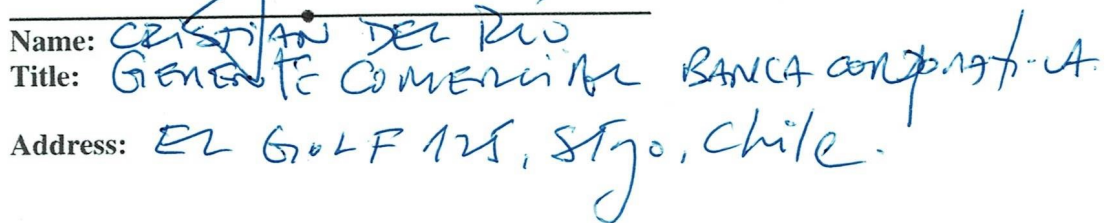 Name: CRISTIAN DEL RIO
Title: GERENTE COMERCIAL BANCA CORPORATIVA.
Address: EL GOLF 125, Stgo, Chile.